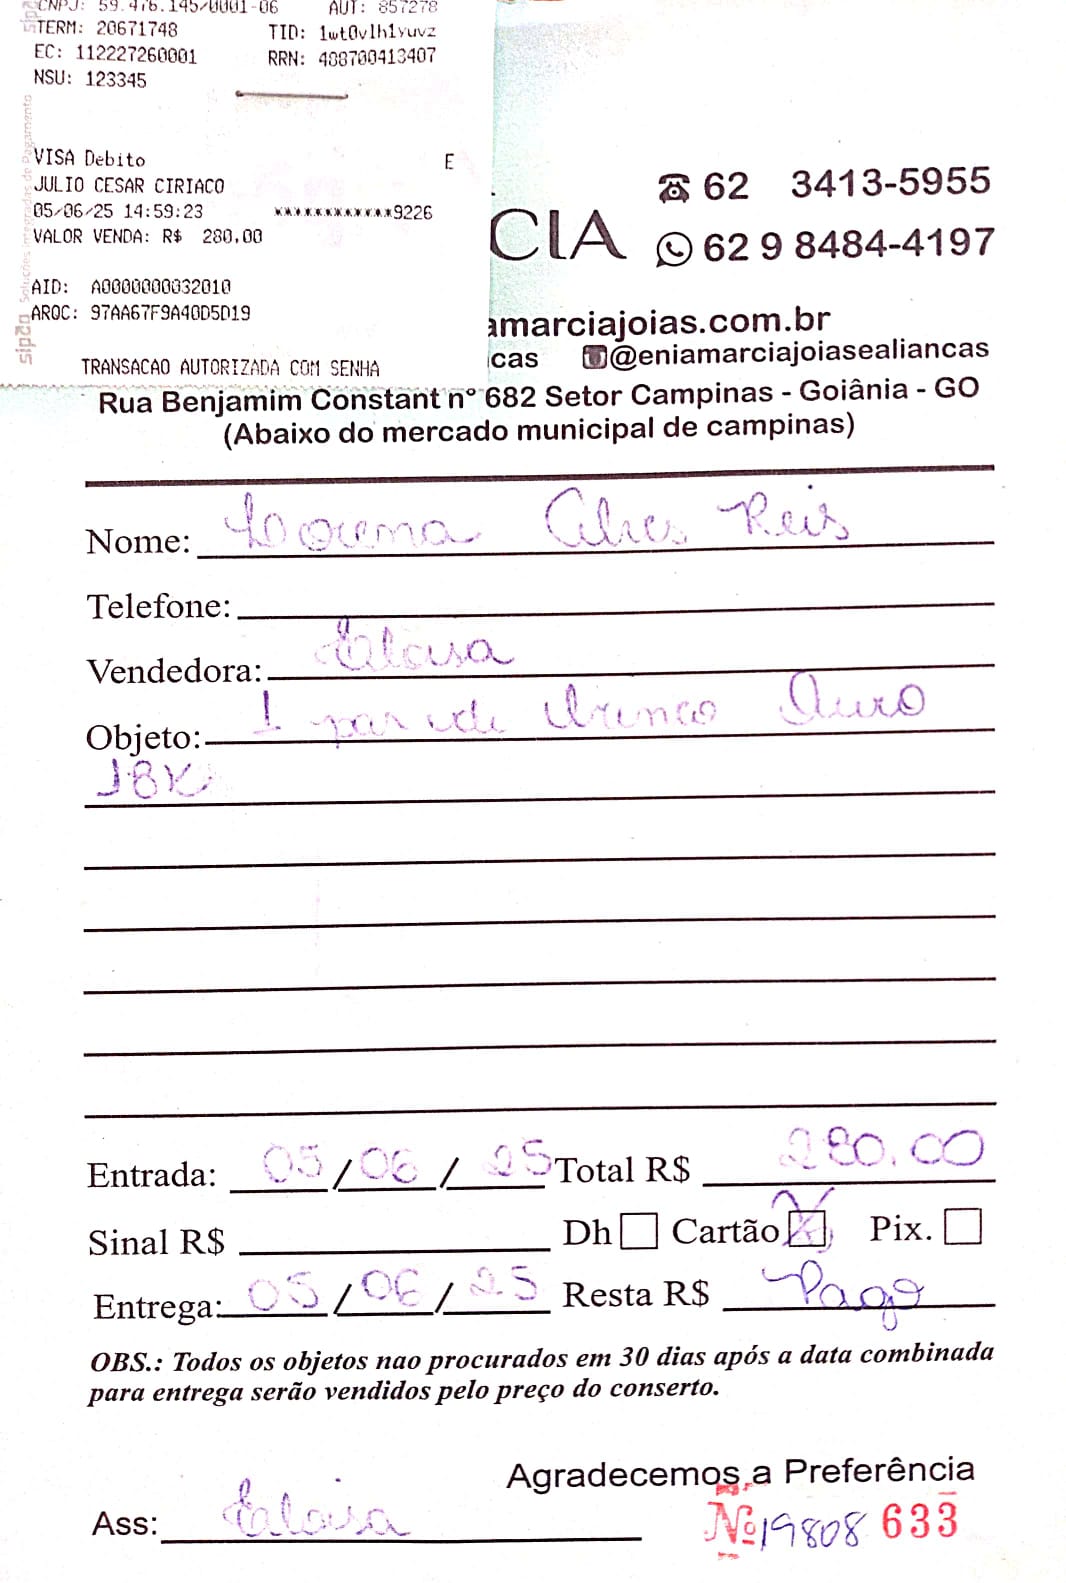 CNPJ: 59.476.145/0001-06 AUT: 857278
TERM: 20671748 TID: 1wt0vlh1yuvz
EC: 112227260001 RRN: 408700413407
NSU: 123345
VISA Debito E
JULIO CESAR CIRIACO
05/06/25 14:59:23 ************9226
VALOR VENDA: R$ 280,00
AID: A0000000032010
ARQC: 97AA67F9A40D5D19
TRANSACAO AUTORIZADA COM SENHA
sipag Soluções Integradas de Pagamento
62 3413-5955
CIA 62 9 8484-4197
amarciajoias.com.br
cas @eniamarciajoiasealiancas
Rua Benjamim Constant nº 682 Setor Campinas - Goiânia - GO
(Abaixo do mercado municipal de campinas)
Nome: Lorena Alves Reis
Telefone:
Vendedora: Eloisa
Objeto: 1 par de Brinco Ouro
18K
Entrada: 05/06/25 Total R$ 280.00
Sinal R$ Dh Cartão X Pix.
Entrega: 05/06/25 Resta R$ Pago
OBS.: Todos os objetos nao procurados em 30 dias após a data combinada
para entrega serão vendidos pelo preço do conserto.
Agradecemos a Preferência
Ass: Eloisa Nº 19808 633